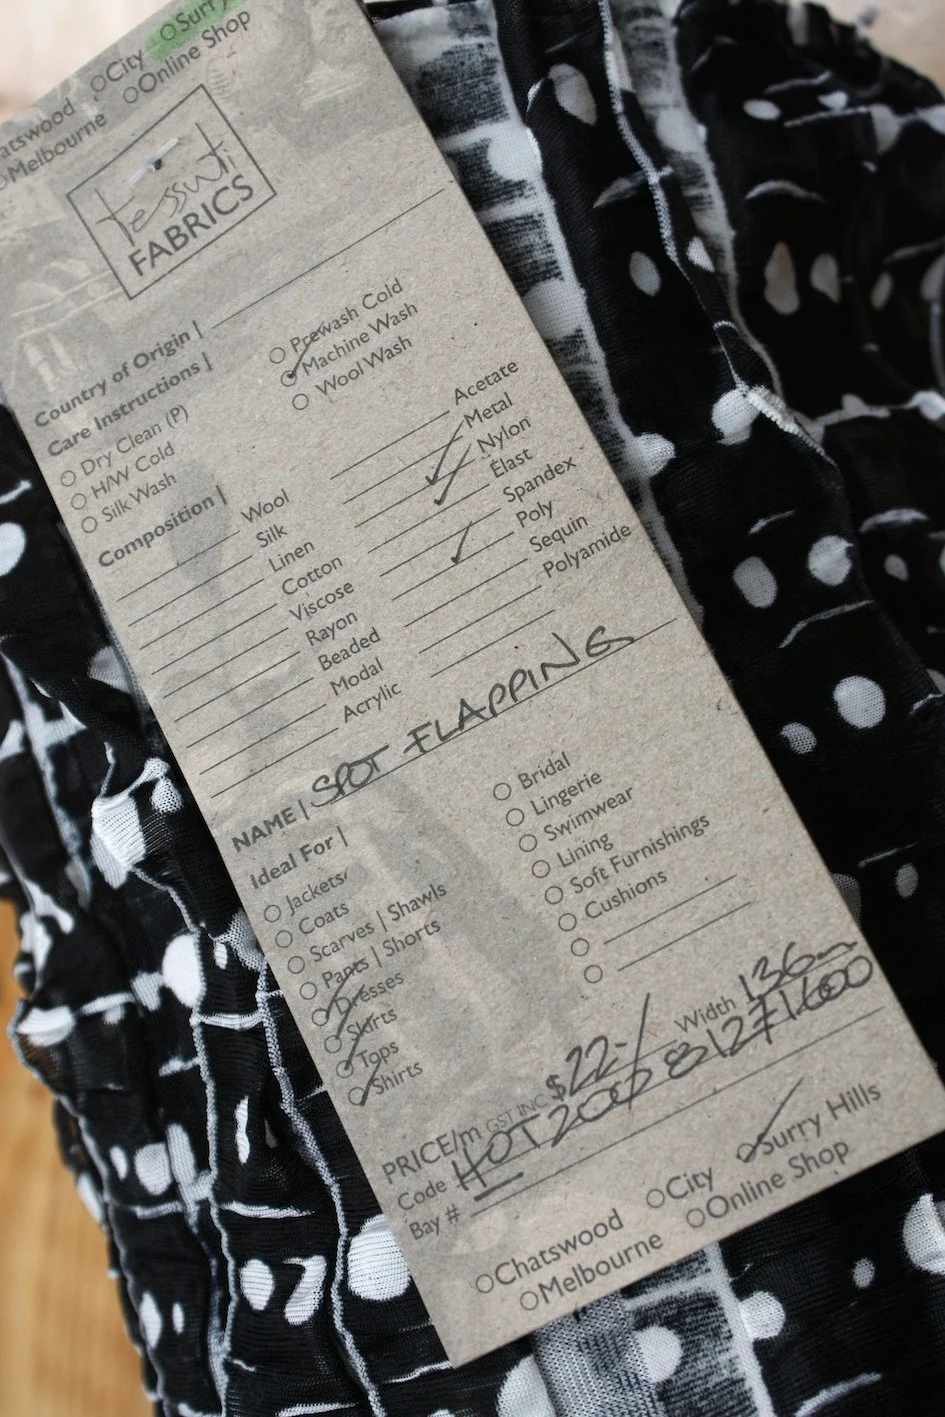 Chatswood ○City ○Surry
○Melbourne ○Online Shop
tessuti
FABRICS
Country of Origin |
Care Instructions |
○ Dry Clean (P) ○ Prewash Cold
○ H/W Cold ○ Machine Wash
○ Silk Wash ○ Wool Wash
Composition |
Wool Acetate
Silk Metal
Linen Nylon
Cotton Elast
Viscose Spandex
Rayon Poly
Beaded Sequin
Modal Polyamide
Acrylic
NAME | SPOT FLAPPING
Ideal For |
○ Jackets ○ Bridal
○ Coats ○ Lingerie
○ Scarves | Shawls ○ Swimwear
○ Pants | Shorts ○ Lining
○ Dresses ○ Soft Furnishings
○ Skirts ○ Cushions
○ Tops ○
○ Shirts ○
PRICE/m GST INC $22- Width 136
Code HOT 200
Bay #
○Chatswood ○City ○Surry Hills
○Melbourne ○Online Shop